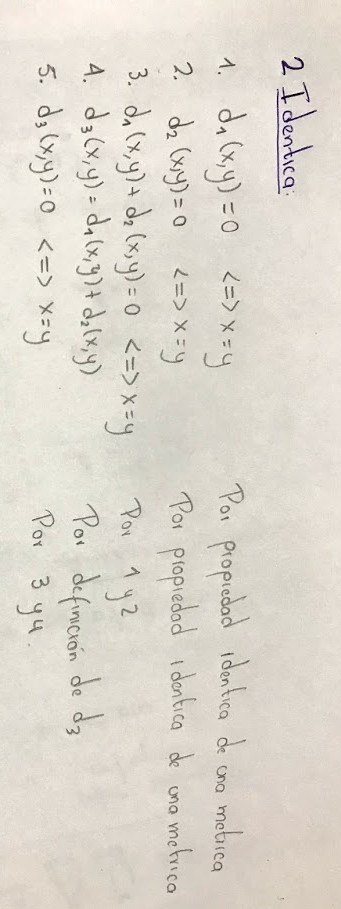 2 Identica:
1. d₁(x,y)=0 <=> x=y Por propiedad identica de una metrica
2. d₂(x,y)=0 <=> x=y Por propiedad identica de una metrica
3. d₁(x,y)+d₂(x,y)=0 <=> x=y Por 1 y 2
4. d₃(x,y)=d₁(x,y)+d₂(x,y) Por definición de d₃
5. d₃(x,y)=0 <=> x=y Por 3 y 4.